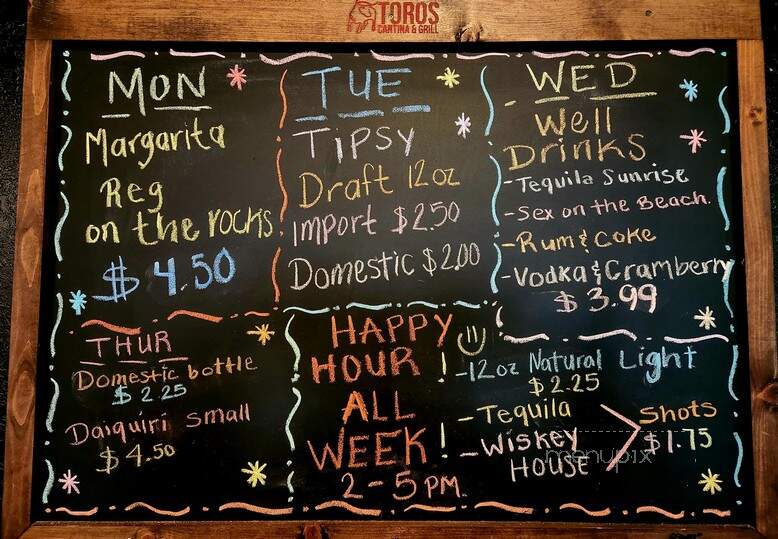 TOROS
CANTINA & GRILL
MON
Margarita
Reg
on the rocks
$4.50
TUE
TIPSY
Draft 12oz
Import $2.50
Domestic $2.00
- WED
Well
Drinks
-Tequila Sunrise
-Sex on the Beach.
-Rum & Coke
-Vodka & Cramberry
$3.99
THUR
Domestic bottle
$2.25
Daiquiri small
$4.50
HAPPY
HOUR !
ALL
WEEK !
2-5 PM.
-12oz Natural Light
$2.25
-Tequila
-Wiskey
HOUSE
Shots
$1.75
menupix